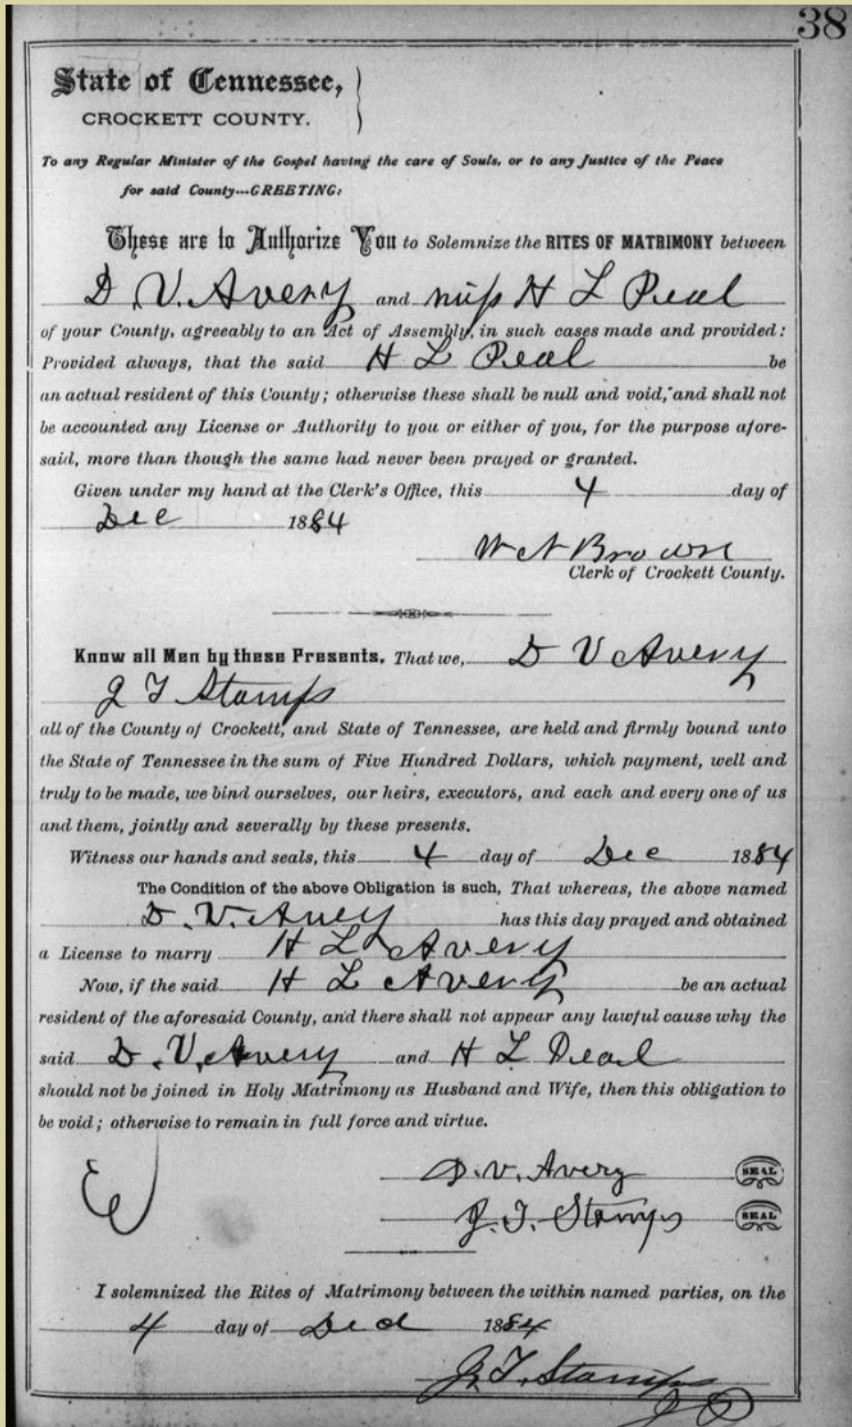 38
State of Tennessee,
CROCKETT COUNTY.
To any Regular Minister of the Gospel having the care of Souls, or to any Justice of the Peace
for said County---GREETING:
These are to Authorize You to Solemnize the RITES OF MATRIMONY between
D. V. Avery and miss H L Peal
of your County, agreeably to an Act of Assembly, in such cases made and provided:
Provided always, that the said H L Peal be
an actual resident of this County; otherwise these shall be null and void, and shall not
be accounted any License or Authority to you or either of you, for the purpose afore-
said, more than though the same had never been prayed or granted.
Given under my hand at the Clerk's Office, this 4 day of
Dec 1884
W N Brown
Clerk of Crockett County.
Know all Men by these Presents, That we, D V Avery
J T Stamps
all of the County of Crockett, and State of Tennessee, are held and firmly bound unto
the State of Tennessee in the sum of Five Hundred Dollars, which payment, well and
truly to be made, we bind ourselves, our heirs, executors, and each and every one of us
and them, jointly and severally by these presents.
Witness our hands and seals, this 4 day of Dec 1884
The Condition of the above Obligation is such, That whereas, the above named
D. V. Avery has this day prayed and obtained
a License to marry H L Avery
Now, if the said H L Avery be an actual
resident of the aforesaid County, and there shall not appear any lawful cause why the
said D. V. Avery and H L Peal
should not be joined in Holy Matrimony as Husband and Wife, then this obligation to
be void; otherwise to remain in full force and virtue.
D. V. Avery SEAL
J. T. Stamps SEAL
I solemnized the Rites of Matrimony between the within named parties, on the
4 day of Ded 1884
J. T. Stamps